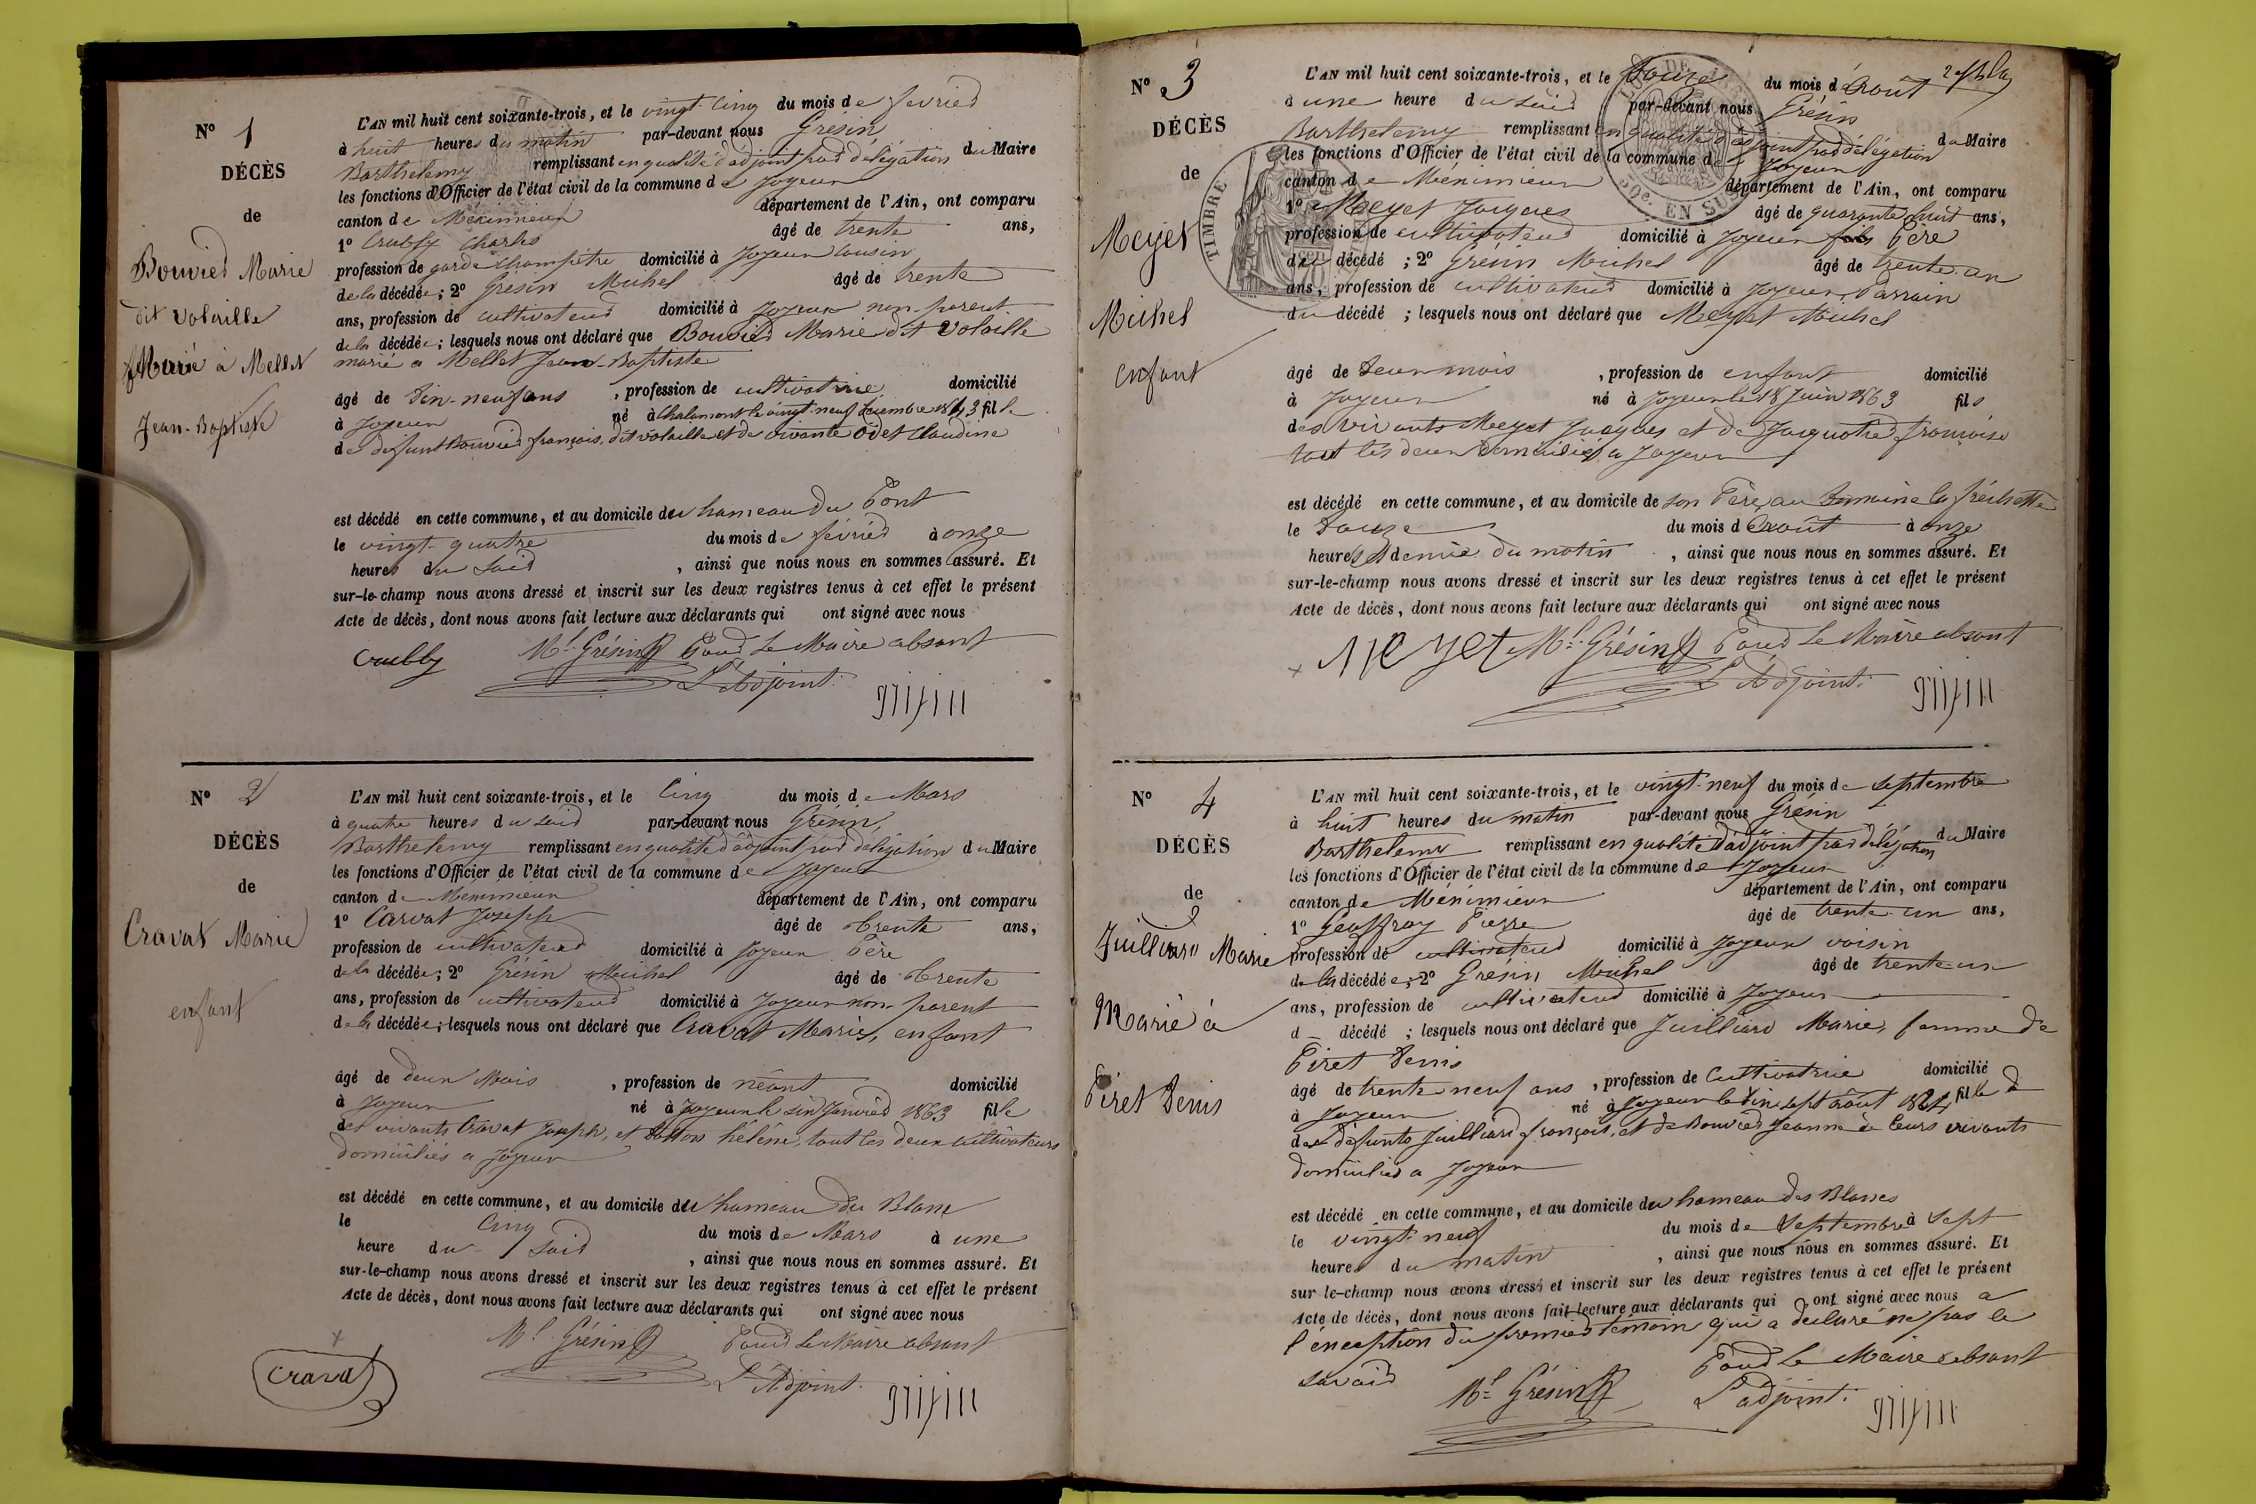 N° 1
DÉCÈS
de
Bouvier Marie
dit Volaille
Marié à Mellet
Jean-Baptiste
L'AN mil huit cent soixante-trois, et le vingt-cinq du mois de février
à huit heures du matin par-devant nous Grésin
Barthelemy remplissant en qualité d'adjoint par délégation du Maire
les fonctions d'Officier de l'état civil de la commune de Joyeux
canton de Méximieux département de l'Ain, ont comparu
1° Charles âgé de trente ans,
profession de garde champêtre domicilié à Joyeux cousin
de la décédée; 2° Grésin Michel âgé de trente
ans, profession de cultivateur domicilié à Joyeux non parent
de la décédée; lesquels nous ont déclaré que Bouvier Marie dit Volaille
marié a Mellet Jean-Baptiste
âgé de dix-neuf ans, profession de cultivatrice domicilié
à Joyeux né à Chalamont le vingt-neuf Décembre 1843 fille
de défunt Bouvier françois, dit volaille et de vivante Odet Claudine
est décédé en cette commune, et au domicile du hameau du Pont
le vingt-quatre du mois de février à onze
heures du soir, ainsi que nous nous en sommes assuré. Et
sur-le-champ nous avons dressé et inscrit sur les deux registres tenus à cet effet le présent
Acte de décès, dont nous avons fait lecture aux déclarants qui ont signé avec nous
Ml Grésin Pour le Maire absent
L'Adjoint.
N° 2
DÉCÈS
de
Cravat Marie
enfant
L'AN mil huit cent soixante-trois, et le Cinq du mois de Mars
à quatre heures du soir par-devant nous Grésin,
Barthelemy remplissant en qualité d'adjoint par délégation du Maire
les fonctions d'Officier de l'état civil de la commune de Joyeux
canton de Meximieux département de l'Ain, ont comparu
1° Carvat Joseph âgé de Trente ans,
profession de cultivateur domicilié à Joyeux Père
de la décédée; 2° Grésin Michel âgé de Trente
ans, profession de cultivateur domicilié à Joyeux non parent
de la décédée; lesquels nous ont déclaré que Cravat Marie, enfant
âgé de deux Mois, profession de néant domicilié
à Joyeux né à Joyeux le six Janvier 1863 fille
des vivants Cravat Joseph, et hélène, tout les deux cultivateurs
domiciliés a Joyeux
est décédé en cette commune, et au domicile du hameau du Blanc
le Cinq du mois de Mars à une
heure du soir, ainsi que nous nous en sommes assuré. Et
sur-le-champ nous avons dressé et inscrit sur les deux registres tenus à cet effet le présent
Acte de décès, dont nous avons fait lecture aux déclarants qui ont signé avec nous
Cravat Ml Grésin Pour le Maire absent
L'Adjoint.
N° 3
DÉCÈS
de
Meyet
Michel
enfant
TIMBRE
EN SUS
L'AN mil huit cent soixante-trois, et le Douze du mois d'Août
à une heure du soir par-devant nous Grésin
Barthelemy remplissant en qualité d'adjoint par délégation du Maire
les fonctions d'Officier de l'état civil de la commune de Joyeux
canton de Méximieux département de l'Ain, ont comparu
1° Meyet Jacques âgé de quarante huit ans,
profession de cultivateur domicilié à Joyeux Père
du décédé; 2° Grésin Michel âgé de trente-un
ans, profession de cultivateur domicilié à Joyeux, Parrain
du décédé; lesquels nous ont déclaré que Meyet Michel
âgé de deux mois, profession de enfant domicilié
à Joyeux né à Joyeux le 18 Juin 1863 fils
des vivants Meyet Jacques et de Jacquotte françoise
tout les deux domiciliés a Joyeux
est décédé en cette commune, et au domicile de son Père, au Domaine la
le Douze du mois d'Août à onze
heures et demie du matin, ainsi que nous nous en sommes assuré. Et
sur-le-champ nous avons dressé et inscrit sur les deux registres tenus à cet effet le présent
Acte de décès, dont nous avons fait lecture aux déclarants qui ont signé avec nous
Meyet Ml Grésin Pour Le Maire absent
L'Adjoint.
N° 4
DÉCÈS
de
Juilliard Marie
Marié à
Piret Denis
L'AN mil huit cent soixante-trois, et le vingt-neuf du mois de septembre
à huit heures du matin par-devant nous Grésin
Barthelemy remplissant en qualité d'adjoint par délégation du Maire
les fonctions d'Officier de l'état civil de la commune de Joyeux
canton de Méximieux département de l'Ain, ont comparu
1° Geoffray Pierre âgé de trente-un ans,
profession de cultivateur domicilié à Joyeux voisin
de la décédée; 2° Grésin Michel âgé de trente-un
ans, profession de cultivateur domicilié à Joyeux
d décédé; lesquels nous ont déclaré que Juilliard Marie, femme de
Piret Denis
âgé de trente neuf ans, profession de Cultivatrice domicilié
à Joyeux né à Joyeux le dix-sept août 1824 fille
des défunts Juilliard françois, et de Bouvier Jeanne de leurs vivants
domiciliés a Joyeux
est décédé en cette commune, et au domicile du hameau des Blancs
le vingt-neuf du mois de Septembre à sept
heures du matin, ainsi que nous nous en sommes assuré. Et
sur-le-champ nous avons dressé et inscrit sur les deux registres tenus à cet effet le présent
Acte de décès, dont nous avons fait lecture aux déclarants qui ont signé avec nous a
l'exception du premier témoin qui a déclaré ne pas le
savoir
Ml Grésin Pour le Maire absent
L'adjoint.